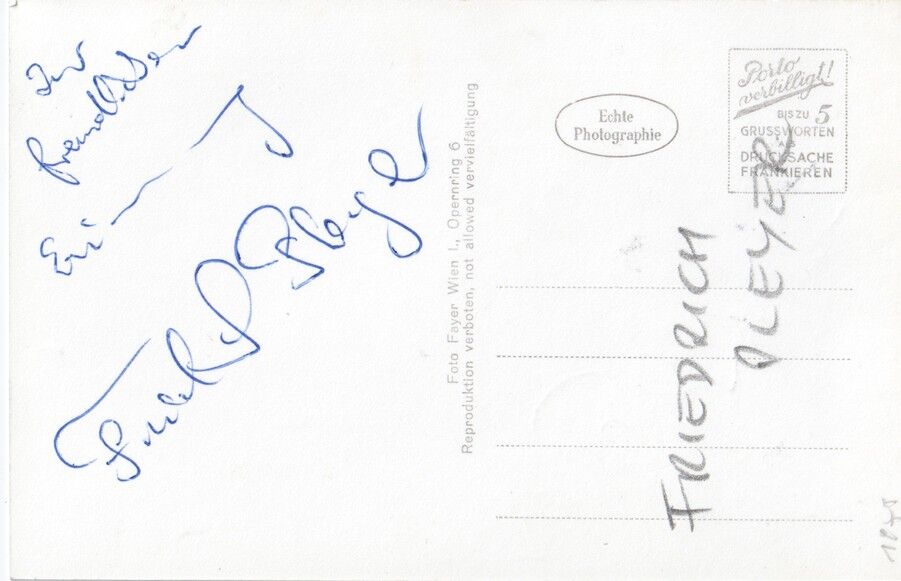 Zur
freundlichen
Erinnerung
Friedrich Pleyer
Foto Fayer Wien I., Opernring 6
Reproduktion verboten, not allowed vervielfältigung
Echte
Photographie
Porto
verbilligt!
BIS ZU 5
GRUSSWORTEN
DRUCKSACHE
FRANKIEREN
FRIEDRICH
PLEYER